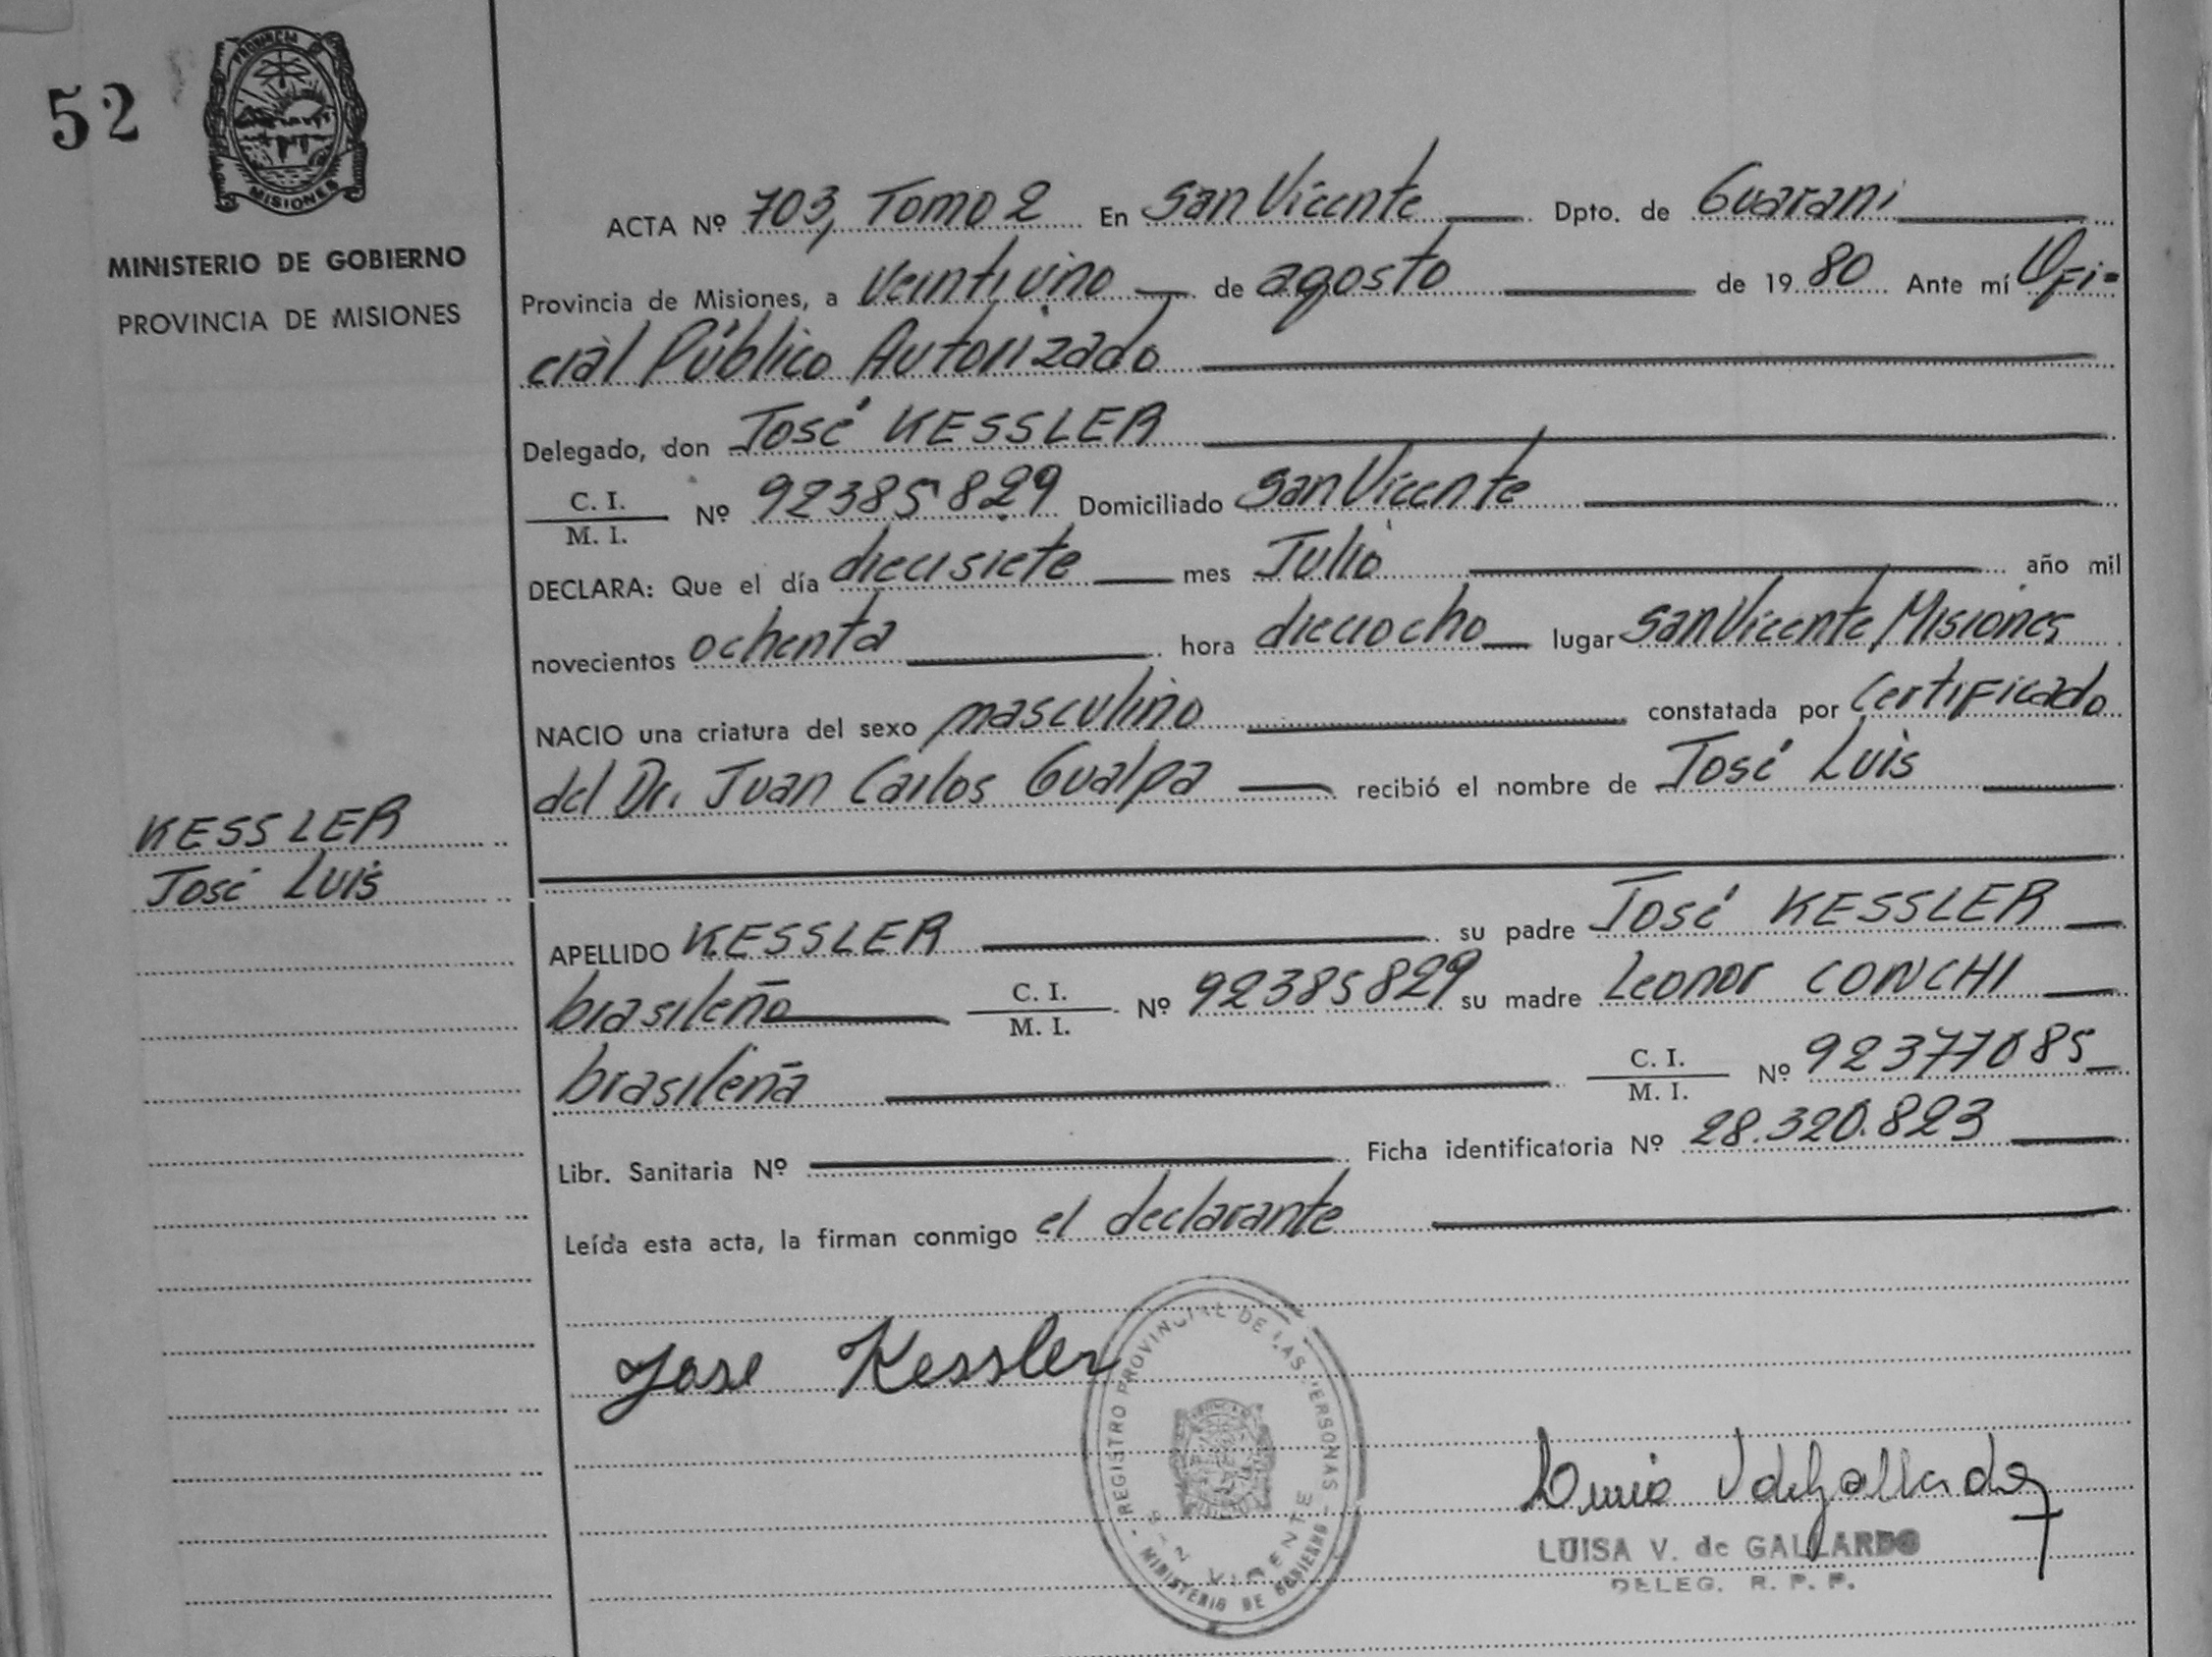 52
PROVINCIA
MISIONES
MINISTERIO DE GOBIERNO
PROVINCIA DE MISIONES
ACTA Nº 703, Tomo 2 En San Vicente Dpto. de Guaraní
Provincia de Misiones, a Veintiuno de agosto de 19 80 Ante mí Ofi-
cial Público Autorizado
Delegado, don José KESSLER
C. I.
M. I. Nº 92385829 Domiciliado San Vicente
DECLARA: Que el día diecisiete mes Julio año mil
novecientos ochenta hora dieciocho lugar San Vicente Misiones
NACIO una criatura del sexo masculino constatada por Certificado
del Dr. Juan Carlos Gualpa recibió el nombre de José Luis
KESSLER
José Luis
APELLIDO KESSLER su padre José KESSLER
brasileño C. I. M. I. Nº 92385829 su madre Leonor CONCHI
brasileña C. I. M. I. Nº 92377085
Libr. Sanitaria Nº Ficha identificatoria Nº 28.320.823
Leída esta acta, la firman conmigo el declarante
Jose Kessler
REGISTRO PROVINCIAL DE LAS PERSONAS
SAN VICENTE
MINISTERIO DE GOBIERNO
LUISA V. de GALLARDO
DELEG. R. P. P.